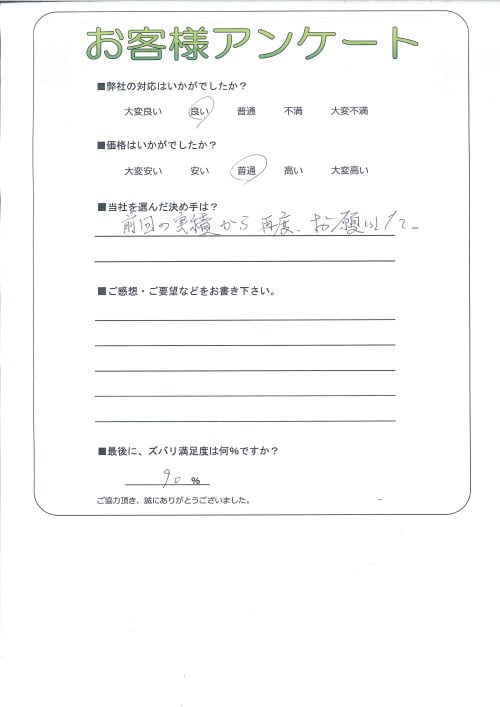 お客様アンケート
■弊社の対応はいかがでしたか？
大変良い 良い 普通 不満 大変不満
■価格はいかがでしたか？
大変安い 安い 普通 高い 大変高い
■当社を選んだ決め手は？
前回の実績から再度、お願いした。
■ご感想・ご要望などをお書き下さい。
■最後に、ズバリ満足度は何％ですか？
90 ％
ご協力頂き、誠にありがとうございました。